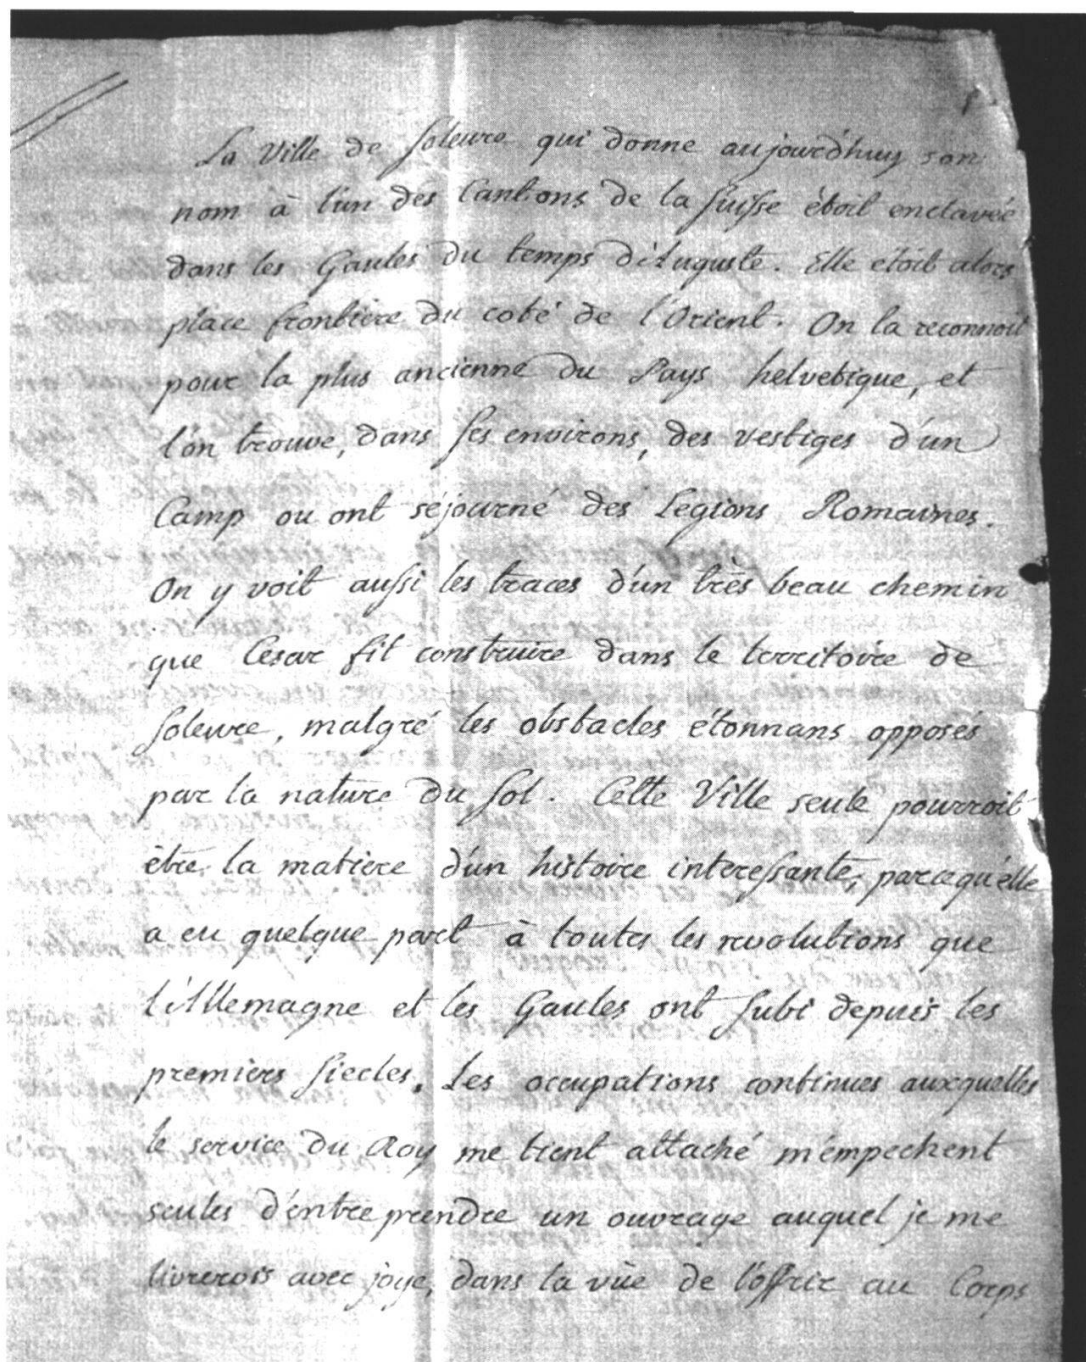 La Ville de Soleure qui donne aujourd'huy son
nom à l'un des Cantons de la Suisse étoit enclavée
dans les Gaules du temps d'Auguste. Elle étoit alors
place frontière du coté de l'Orient. On la reconnoit
pour la plus ancienne du Pays helvetique, et
l'on trouve, dans ses environs, des vestiges d'un
Camp ou ont séjourné des Legions Romaines.
On y voit aussi les traces d'un très beau chemin
que Cesar fit construire dans le territoire de
Soleure, malgré les obstacles étonnans opposés
par la nature du sol. Cette Ville seule pourroit
être la matiere d'un histoire interessante, parcequ'elle
a eu quelque part à toutes les revolutions que
l'Allemagne et les Gaules ont subi depuis les
premiers siecles. Les occupations continues auxquelles
le service du Roy me tient attaché m'empechent
seules d'entreprendre un ouvrage auquel je me
livrerois avec joye, dans la vüe de l'offrir au Corps